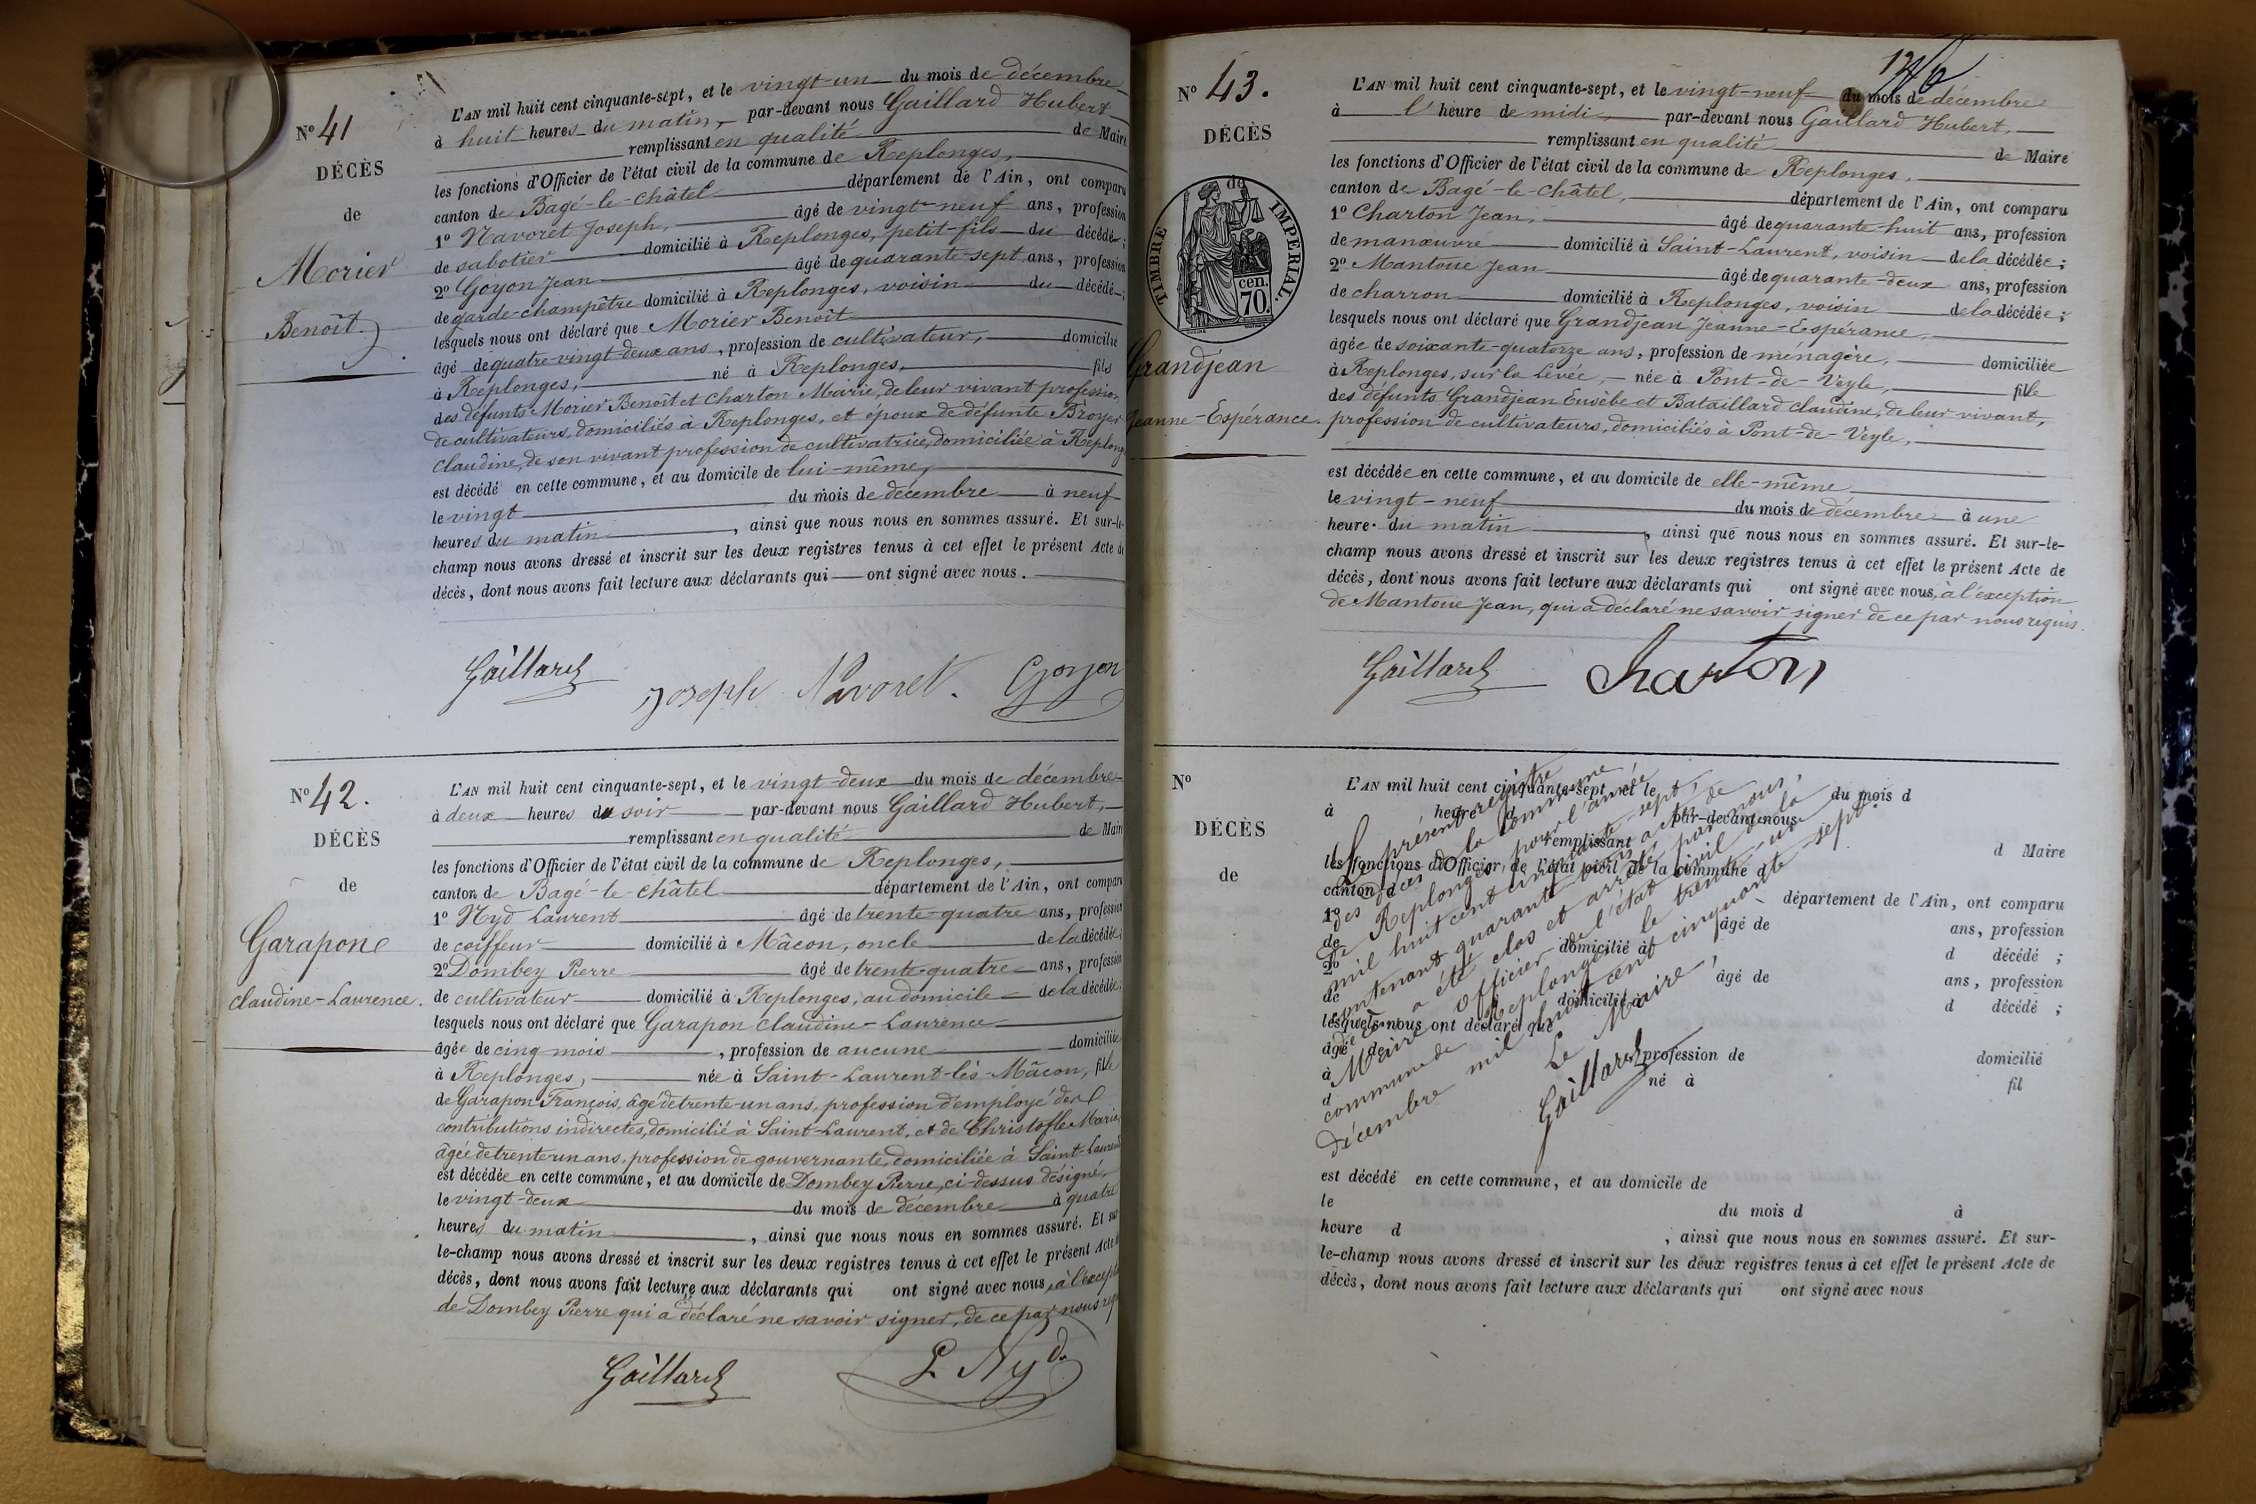 N° 41
DÉCÈS
de
Morier
Benoît.
L'AN mil huit cent cinquante-sept, et le vingt-un du mois de décembre
à huit heures du matin, par-devant nous Gaillard Hubert
remplissant en qualité de Maire
les fonctions d'Officier de l'état civil de la commune de Replonges,
canton de Bagé-le-Châtel département de l'Ain, ont comparu
1° Navoret Joseph, âgé de vingt-neuf ans, profession
de sabotier domicilié à Replonges, petit-fils du décédé ;
2° Goyon Jean âgé de quarante-sept ans, profession
de garde-champêtre domicilié à Replonges, voisin du décédé ;
lesquels nous ont déclaré que Morier Benoît
âgé de quatre-vingt-deux ans, profession de cultivateur, domicilié
à Replonges, né à Replonges, fils
des défunts Morier Benoît et Charton Marie, de leur vivant profession
de cultivateurs, domiciliés à Replonges, et époux de défunte Broyer
Claudine, de son vivant profession de cultivatrice, domiciliée à Replong
est décédé en cette commune, et au domicile de lui-même,
le vingt du mois de décembre à neuf
heures du matin, ainsi que nous nous en sommes assuré. Et sur-le-
champ nous avons dressé et inscrit sur les deux registres tenus à cet effet le présent Acte de
décès, dont nous avons fait lecture aux déclarants qui ont signé avec nous.
Gaillard Joseph Navoret. Goyon
N° 42.
DÉCÈS
de
Garapone
Claudine-Laurence.
L'AN mil huit cent cinquante-sept, et le vingt-deux du mois de décembre
à deux heures du soir par-devant nous Gaillard Hubert,
remplissant en qualité de Maire
les fonctions d'Officier de l'état civil de la commune de Replonges,
canton de Bagé-le-Châtel département de l'Ain, ont comparu
1° Nyd Laurent âgé de trente-quatre ans, profession
de coiffeur domicilié à Mâcon, oncle de la décédée ;
2° Dombey Pierre âgé de trente-quatre ans, profession
de cultivateur domicilié à Replonges, au domicile de la décédée ;
lesquels nous ont déclaré que Garapon Claudine-Laurence
âgée de cinq mois, profession de aucune domiciliée
à Replonges, née à Saint-Laurent-lès-Mâcon, fille
de Garapon François, âgé de trente-un ans, profession d'employé des
contributions indirectes, domicilié à Saint-Laurent, et de Christofle Marie,
âgée de trente-un ans, profession de gouvernante, domiciliée à Saint-Laurent
est décédée en cette commune, et au domicile de Dombey Pierre, ci-dessus désigné,
le vingt-deux du mois de décembre à quatre
heures du matin, ainsi que nous nous en sommes assuré. Et sur
le-champ nous avons dressé et inscrit sur les deux registres tenus à cet effet le présent Acte de
décès, dont nous avons fait lecture aux déclarants qui ont signé avec nous, à l'excep
de Dombey Pierre qui a déclaré ne savoir signer, de ce par nous req
Gaillard L. Nyd.
126
N° 43.
DÉCÈS
de
TIMBRE IMPERIAL.
70 cen.
Grandjean
Jeanne-Espérance.
L'AN mil huit cent cinquante-sept, et le vingt-neuf du mois de décembre
à l'heure de midi, par-devant nous Gaillard Hubert,
remplissant en qualité de Maire
les fonctions d'Officier de l'état civil de la commune de Replonges,
canton de Bagé-le-Châtel, département de l'Ain, ont comparu
1° Charton Jean, âgé de quarante-huit ans, profession
de manœuvre domicilié à Saint-Laurent, voisin de la décédée ;
2° Mantoue Jean âgé de quarante-deux ans, profession
de charron domicilié à Replonges, voisin de la décédée ;
lesquels nous ont déclaré que Grandjean Jeanne-Espérance,
âgée de soixante-quatorze ans, profession de ménagère, domiciliée
à Replonges, sur la Levée, née à Pont-de-Veyle, fille
des défunts Grandjean Eusèbe et Bataillard Claudine, de leur vivant,
profession de cultivateurs, domiciliés à Pont-de-Veyle,
est décédée en cette commune, et au domicile de elle-même
le vingt-neuf du mois de décembre à une
heure du matin, ainsi que nous nous en sommes assuré. Et sur-le-
champ nous avons dressé et inscrit sur les deux registres tenus à cet effet le présent Acte de
décès, dont nous avons fait lecture aux déclarants qui ont signé avec nous, à l'exception
de Mantoue Jean, qui a déclaré ne savoir signer de ce par nous requis.
Gaillard Charton
N°
DÉCÈS
de
L'AN mil huit cent cinquante-sept, et le du mois d
à heure d par-devant nous
remplissant d Maire
les fonctions d'Officier de l'état civil de la commune d
canton d département de l'Ain, ont comparu
1° âgé de ans, profession
de domicilié à d décédé ;
2° âgé de ans, profession
de domicilié à d décédé ;
lesquels nous ont déclaré que
âgé de profession de domicilié
à né à fil
d
est décédé en cette commune, et au domicile de
le du mois d à
heure d, ainsi que nous nous en sommes assuré. Et sur-
le-champ nous avons dressé et inscrit sur les deux registres tenus à cet effet le présent Acte de
décès, dont nous avons fait lecture aux déclarants qui ont signé avec nous
Le présent registre
des décès de la commune
de Replonges, pour l'année
mil huit cent cinquante-sept,
contenant quarante-trois actes de
décès a été clos et arrêté par nous,
Maire Officier de l'état civil de la
commune de Replonges le trente-un
décembre mil huit cent cinquante sept.
Le Maire,
Gaillard